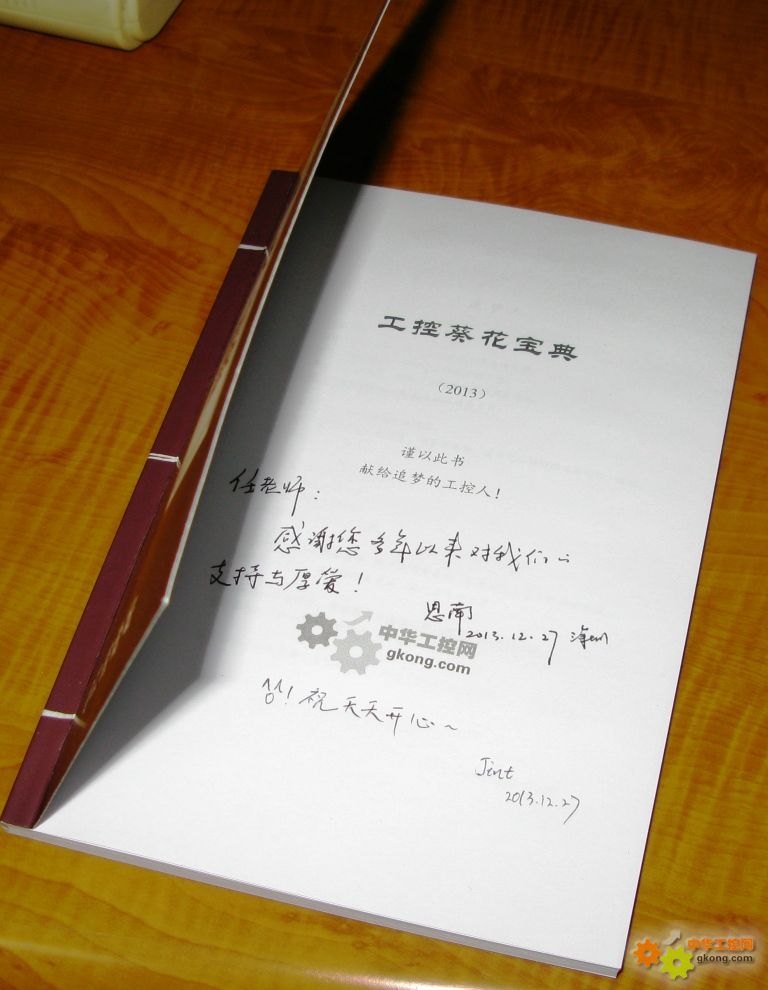 工控葵花宝典
（2013）
谨以此书
献给追梦的工控人！
任老师：
感谢您多年以来对我们的
支持与厚爱！
恩南
2013.12.27 深圳
中华工控网
gkong.com
祝天天开心～
Jint
2013.12.27
中华工控网
gkong.com